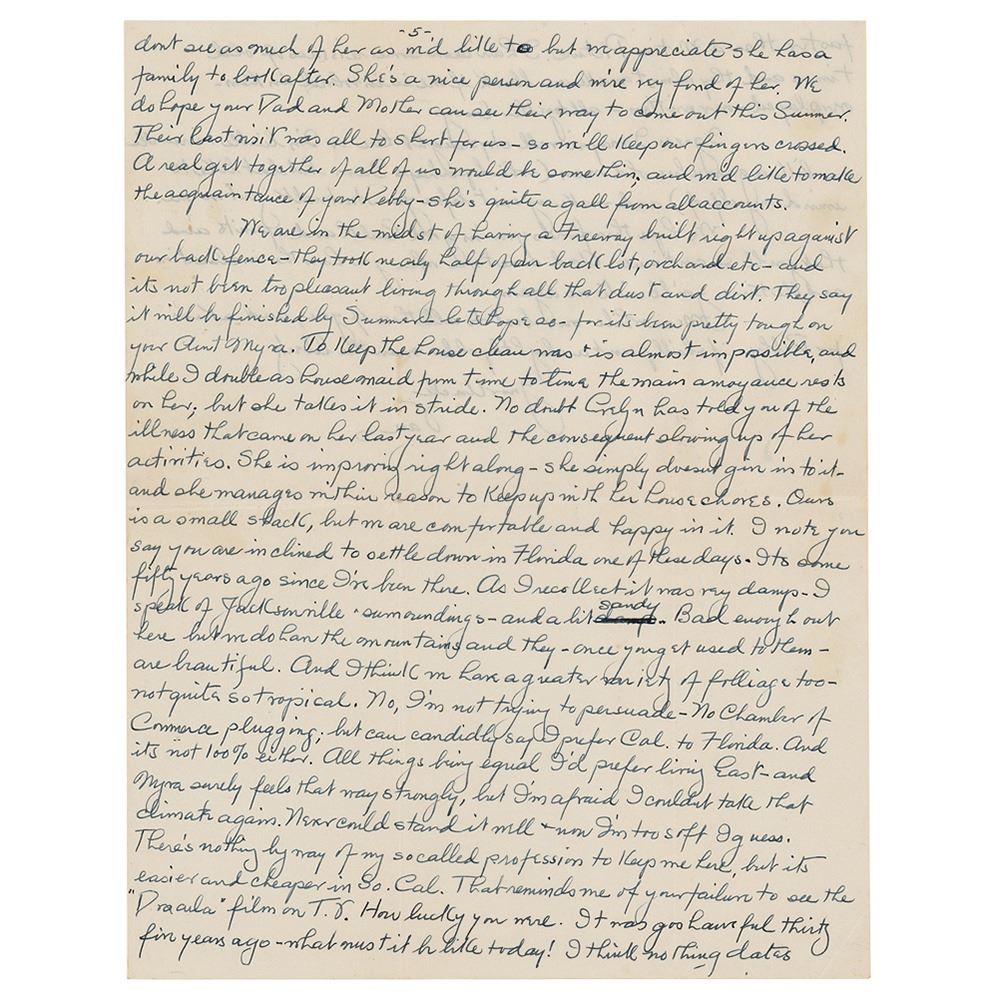 -5-
dont see as much of her as we'd like to but we appreciate she has a
family to look after. She's a nice person and we're very fond of her. We
do hope your Dad and Mother can see their way to come out this Summer.
Their last visit was all to short for us - so we'll keep our fingers crossed.
A real get together of all of us would be somethin; and we'd like to make
the acquaintance of your Debby - she's quite a gall from all accounts.
We are in the midst of having a Freeway built right up against
our back fence - they took nearly half of our back lot, orchard etc - and
it's not been too pleasant living through all that dust and dirt. They say
it will be finished by Summer - lets hope so - for its been pretty tough on
your Aunt Myra. To keep the house clean was + is almost impossible, and
while I double as housemaid from time to time the main annoyance rests
on her; but she takes it in stride. No doubt Evelyn has told you of the
illness that came on her last year and the consequent slowing up of her
activities. She is improving right along - she simply doesnt give in to it -
and she manages within reason to keep up with her house chores. Ours
is a small shack, but we are comfortable and happy in it. I note you
say you are inclined to settle down in Florida one of these days. Its some
fifty years ago since I've been there. As I recollect it was very damp - I
speak of Jacksonville + surroundings - and a bit sandy. Bad enough out
here but we do have the mountains and they - once you get used to them -
are beautiful. And I think we have a greater variety of folliage too -
not quite so tropical. No, I'm not trying to persuade - No Chamber of
Commerce plugging; but can candidly say I prefer Cal. to Florida. And
its not 100% either. All things being equal I'd prefer living East - and
Myra surely feels that way strongly, but I'm afraid I couldnt take that
climate again. Never could stand it well + now I'm too soft I guess.
There's nothing by way of my so called profession to keep me here, but its
easier and cheaper in So. Cal. That reminds me of your failure to see the
"Dracula" film on T.V. How lucky you were. It was goo hawful thirty
five years ago - what must it be like today! I think nothing dates